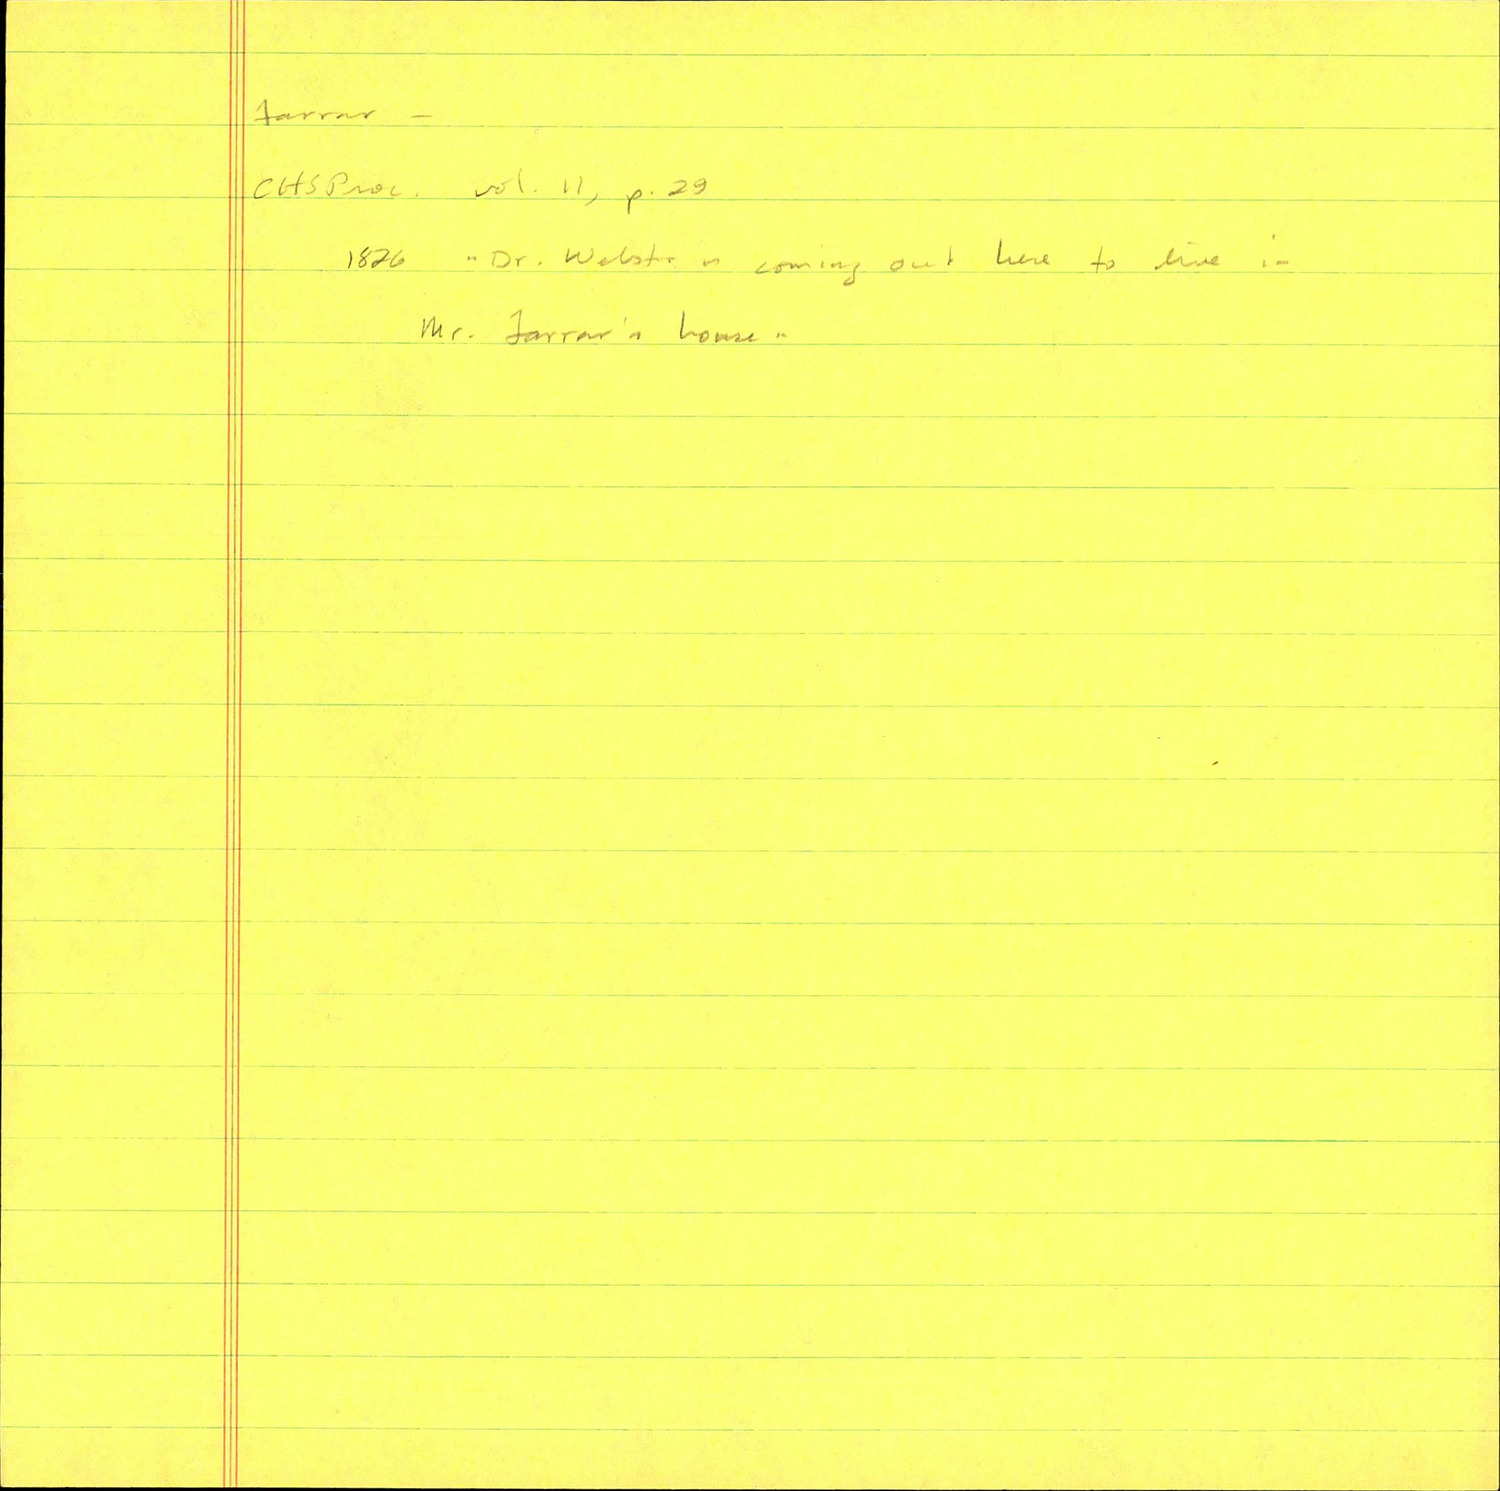 Farrar -
CHSProc. vol. 11, p. 29
1826 "Dr. Webster is coming out here to live in
Mr. Farrar's house"